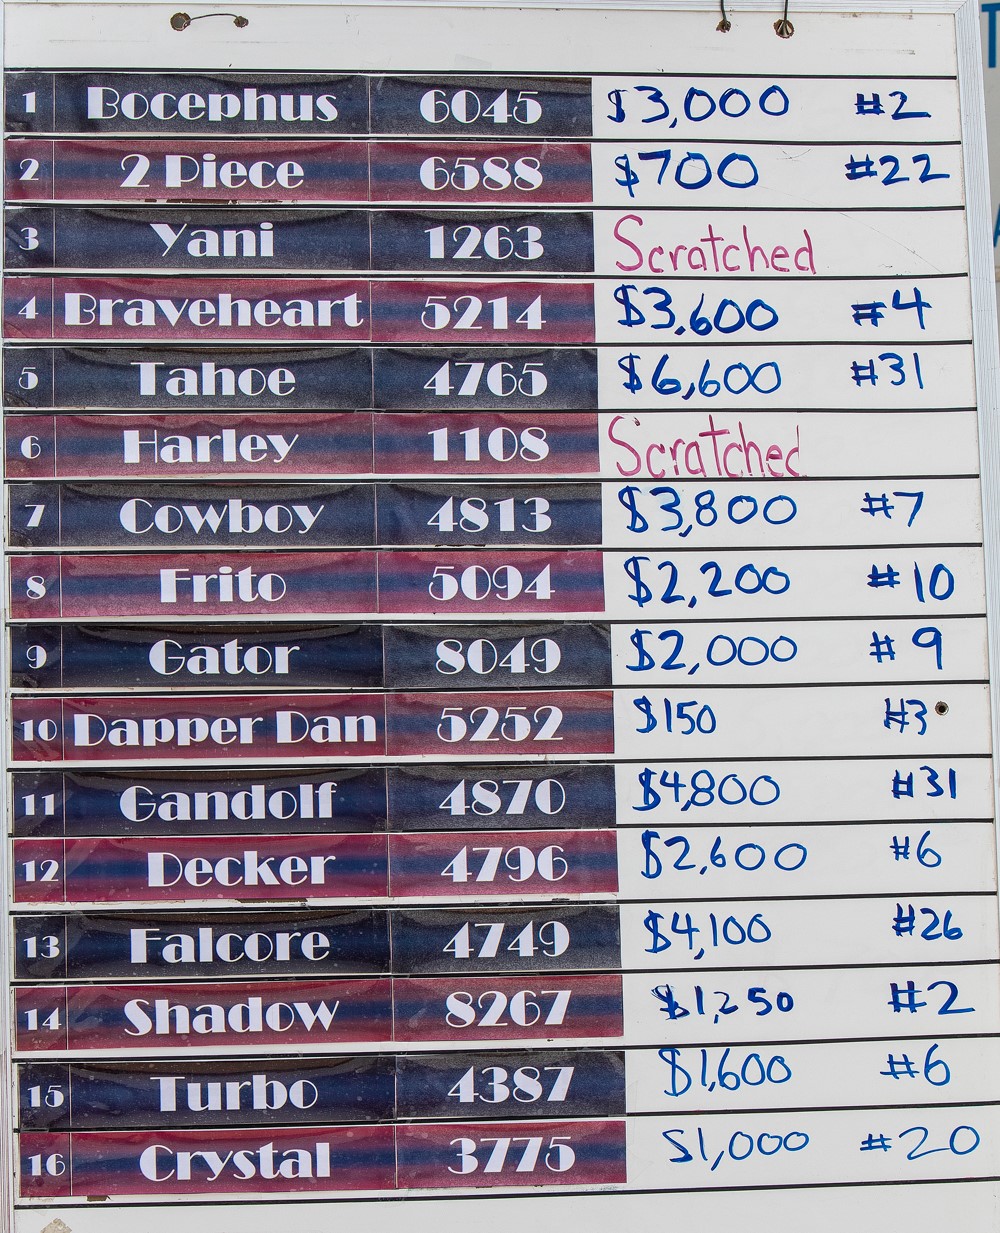 1 Bocephus 6045 $3,000 #2
2 2 Piece 6588 $700 #22
3 Yani 1263 Scratched
4 Braveheart 5214 $3,600 #4
5 Tahoe 4765 $6,600 #31
6 Harley 1108 Scratched
7 Cowboy 4813 $3,800 #7
8 Frito 5094 $2,200 #10
9 Gator 8049 $2,000 #9
10 Dapper Dan 5252 $150 #3
11 Gandolf 4870 $4,800 #31
12 Decker 4796 $2,600 #6
13 Falcore 4749 $4,100 #26
14 Shadow 8267 $1,250 #2
15 Turbo 4387 $1,600 #6
16 Crystal 3775 $1,000 #20